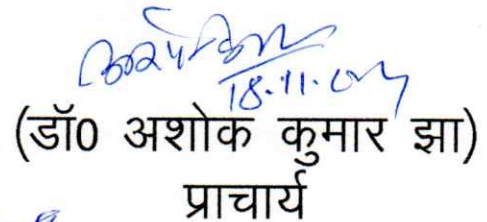 18.11.04
(डॉ0 अशोक कुमार झा)
प्राचार्य